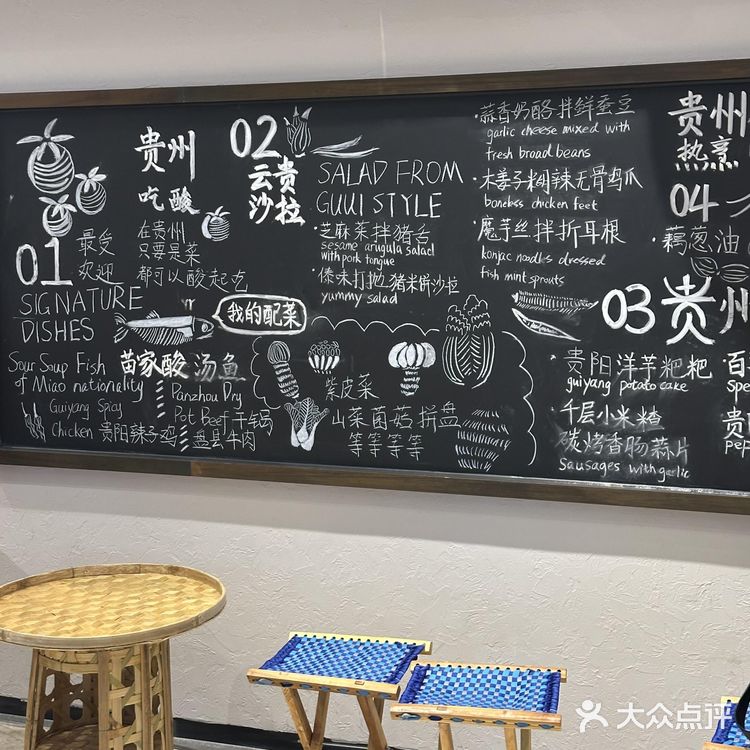 贵州
吃酸
在贵州
只要是菜
都可以酸起吃
01
最受
欢迎
SIGNATURE
DISHES
我的配菜
Sour Soup Fish
of Miao nationality
苗家酸汤鱼
Guiyang Spicy
Chicken 贵阳辣子鸡
Panzhou Dry
Pot Beef 干锅
盘县牛肉
紫皮菜
山菜菌菇拼盘
等等等等
02
云贵
沙拉
SALAD FROM
GUUI STYLE
·芝麻菜拌猪舌
sesame arugula salad
with pork tongue
·傣味打抛猪米饼沙拉
yummy salad
·蒜香奶酪拌鲜蚕豆
garlic cheese mixed with
fresh broad beans
·木姜子糊辣无骨鸡爪
boneless chicken feet
·魔芋丝拌折耳根
konjac noodles dressed
fish mint sprouts
03 贵州
·贵阳洋芋粑粑
guiyang potato cake
·千层小米楂
碳烤香肠蒜片
Sausages with garlic
贵州
热烹
04
·藕葱油
大众点评